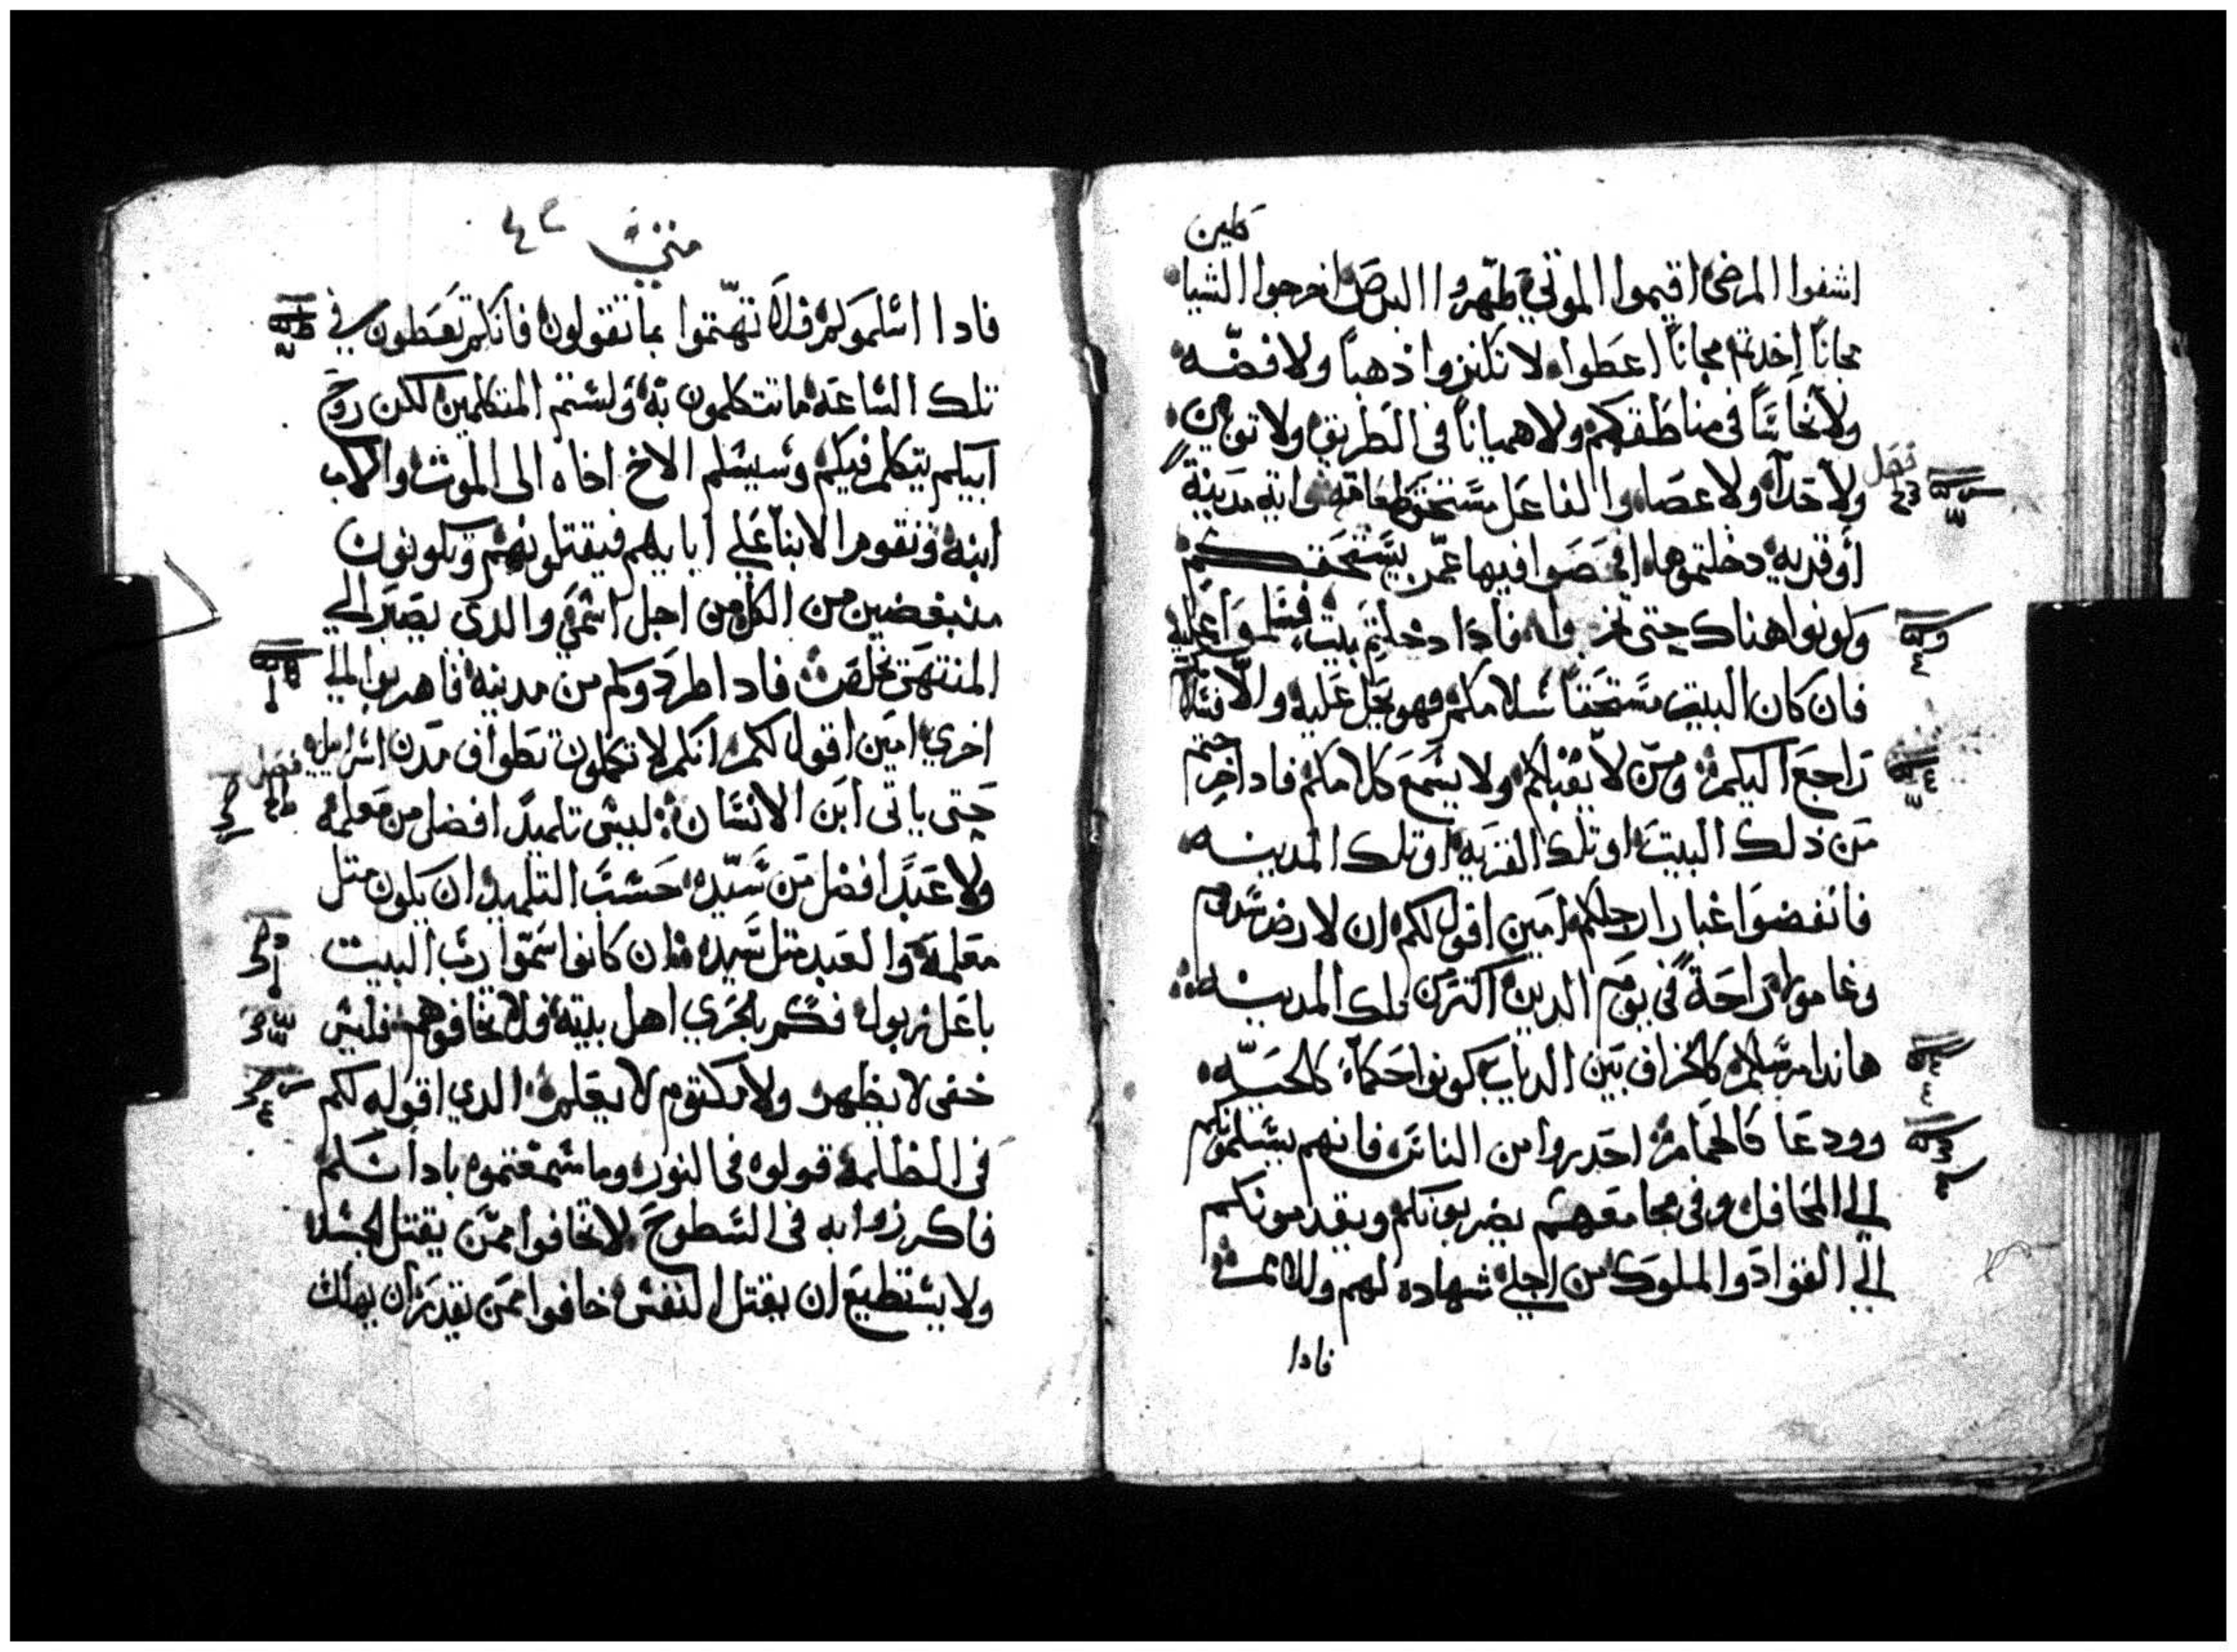 طين
اشفوا المرضى اقيموا الموتي طهروا البرص اخرجوا الشيا
مجاناً اخدتم مجاناً اعطوا لا تكنزوا ذهباً ولا فضه
ولا نحاساً في مناطقكم ولا همياناً في الطريق ولا توبين
ولا حدآ ولا عصا والفاعل مستحق طعامه واية مدينة
أو قريه دخلتموها افحصوا فيها عمن يستحقكم
وكونوا هناك حتى تخرجوا فادا دخلتم بيت فسلموا عليه
فان كان البيت مستحقاً سلامكم فهو يحل عليه والا فسلامكم
راجع اليكم ومن لا يقبلكم ولا يسمع كلامكم فادا خرجتم
من ذلك البيت او تلك القريه او تلك المدينه
فانفضوا غبار ارجلكم امين اقول لكم ان لارض سدوم
وغامورا راحة في يوم الدين اكتر من تلك المدينه
هاندا مرسلكم كالخراف بين الدياب كونوا حكماء كالحيه
وودعا كالحمام احدروا من الناس فانهم يسلمونكم
الي المحافل وفي مجامعهم يضربونكم ويقدمونكم
الي القواد والملوك من اجلي شهاده لهم وللامم
فادا
متى ٤٢
فادا اسلموكم فلا تهتموا بما تقولون فانكم تعطون في
تلك الساعه ما تتكلمون به ولستم المتكلمين لكن روح
ابيكم يتكلم فيكم وسيسلم الاخ اخاه الى الموت والاب
ابنه وتقوم الابنا علي ابايهم فيقتلونهم وتكونون
منبغضين من الكل من اجل اسمي والدي يصبر الي
المنتهى يخلص فادا طردوكم من مدينه فاهربوا الي
اخري امين اقول لكم انكم لا تكملون تطواف مدن اسراييل فصل
حتى ياتى ابن الانسان ليس تلميد افضل من معلمه
ولا عبد افضل من سيده حسب التلميد ان يكون متل
معلمه والعبد متل سيده فان كانوا سموا رب البيت
باعل زبول فكم بالحري اهل بيته فلا تخافوهم فليس
خفى لا يظهر ولا مكتوم لا يعلم الدي اقوله لكم
في الظلمه قولوه في النور وما سمعتموه بادانكم
فاكرزوا به في السطوح لا تخافوا ممن يقتل الجسد
ولا يستطيع ان يقتل النفس خافوا ممن يقدر ان يهلك